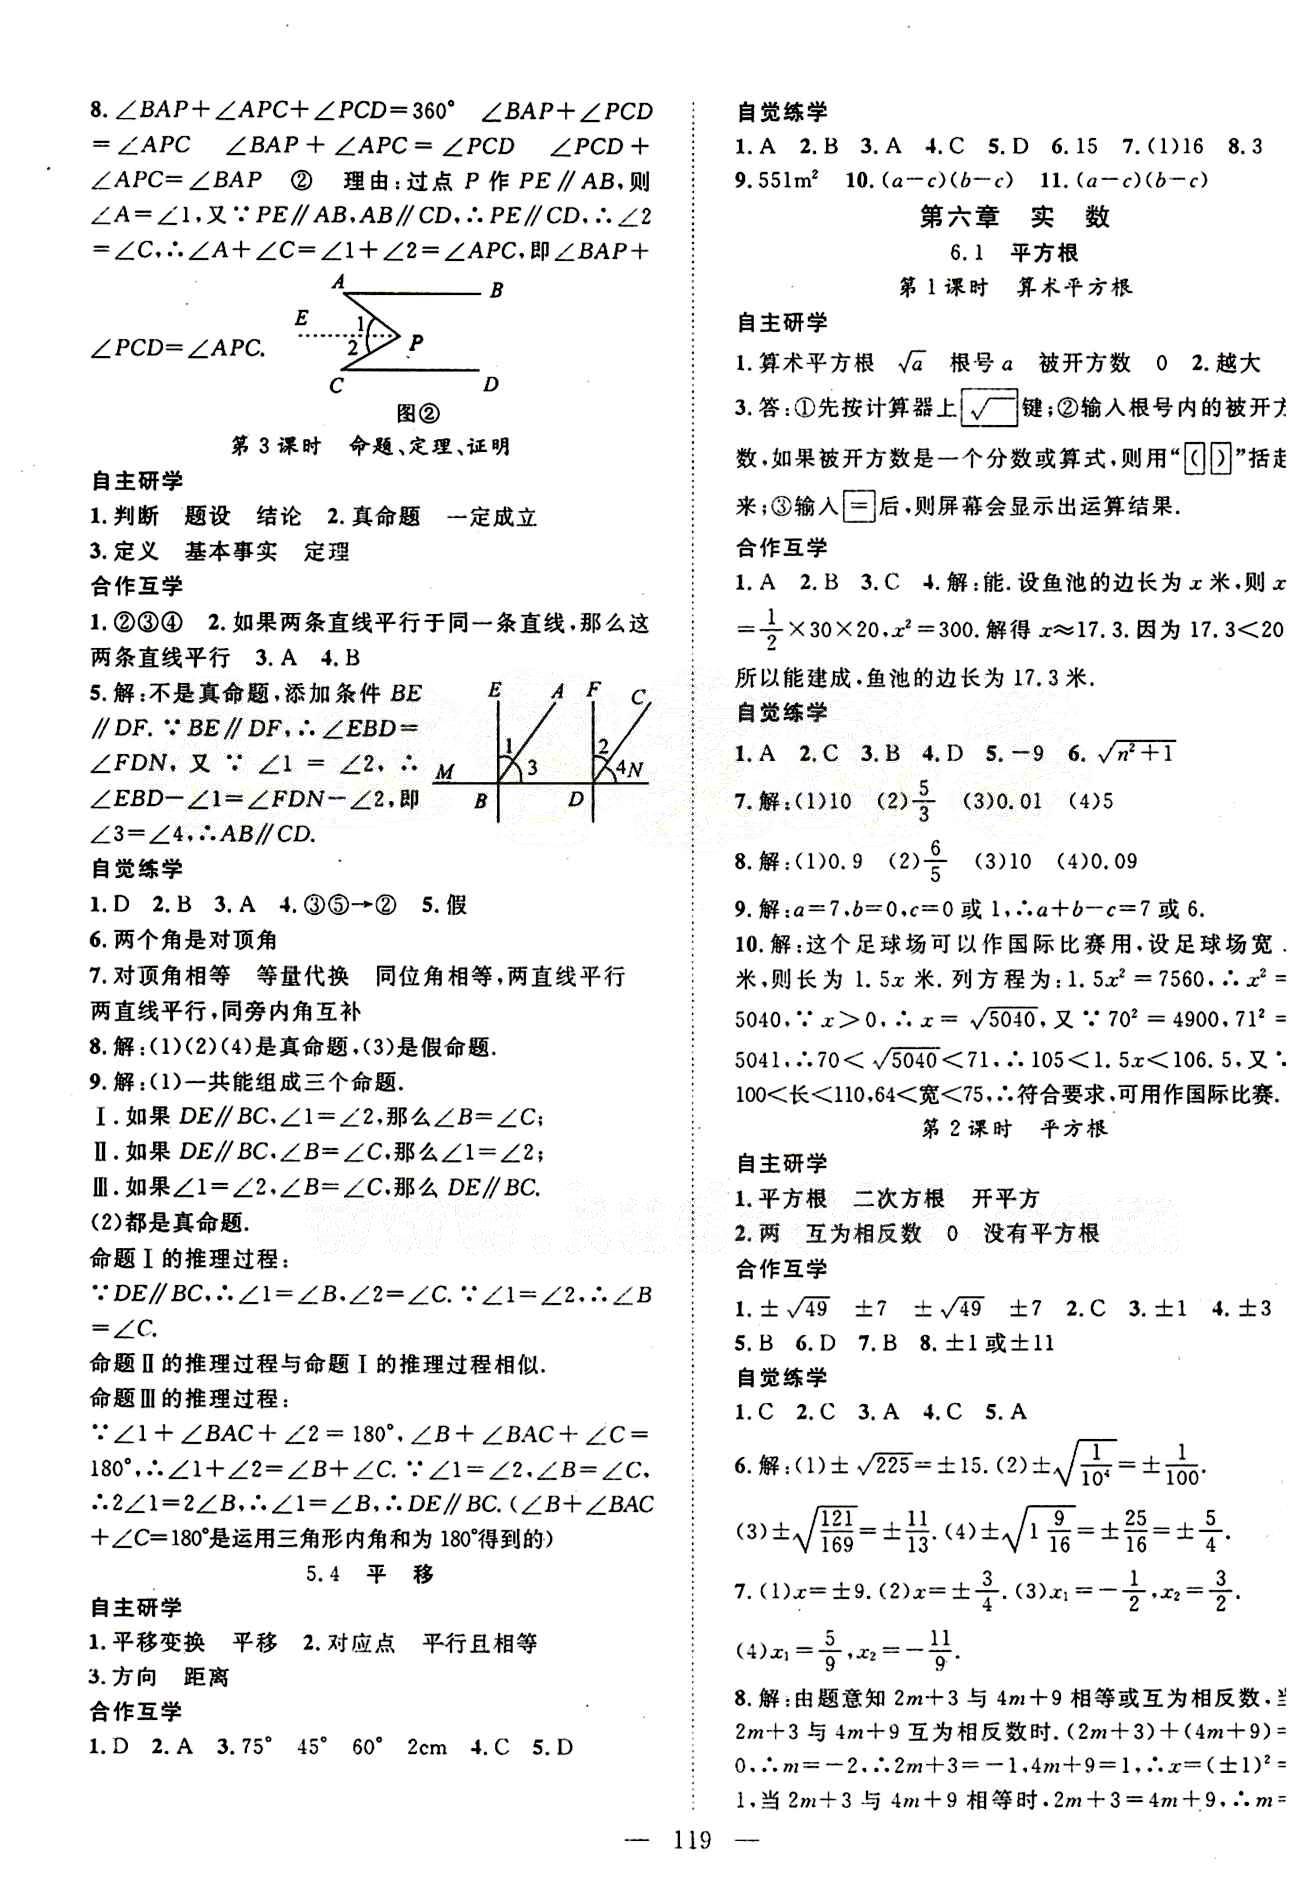 8.∠BAP+∠APC+∠PCD=360° ∠BAP+∠PCD
=∠APC ∠BAP+∠APC=∠PCD ∠PCD+
∠APC=∠BAP ② 理由:过点 P 作 PE∥AB,则
∠A=∠1,又∵PE∥AB,AB∥CD,∴PE∥CD,∴∠2
=∠C,∴∠A+∠C=∠1+∠2=∠APC,即∠BAP+
∠PCD=∠APC.
A
B
E
1
2
P
C
D
图②
第 3 课时 命题、定理、证明
自主研学
1.判断 题设 结论 2.真命题 一定成立
3.定义 基本事实 定理
合作互学
1.②③④ 2.如果两条直线平行于同一条直线,那么这
两条直线平行 3.A 4.B
5.解:不是真命题,添加条件 BE
∥DF.∵BE∥DF,∴∠EBD=
∠FDN,又∵∠1=∠2,∴
∠EBD-∠1=∠FDN-∠2,即
∠3=∠4,∴AB∥CD.
E A F C
1 2
M 3 4 N
B D
自觉练学
1.D 2.B 3.A 4.③⑤→② 5.假
6.两个角是对顶角
7.对顶角相等 等量代换 同位角相等,两直线平行
两直线平行,同旁内角互补
8.解:(1)(2)(4)是真命题,(3)是假命题.
9.解:(1)一共能组成三个命题.
Ⅰ.如果 DE∥BC,∠1=∠2,那么∠B=∠C;
Ⅱ.如果 DE∥BC,∠B=∠C,那么∠1=∠2;
Ⅲ.如果∠1=∠2,∠B=∠C,那么 DE∥BC.
(2)都是真命题.
命题Ⅰ的推理过程:
∵DE∥BC,∴∠1=∠B,∠2=∠C.∵∠1=∠2,∴∠B
=∠C.
命题Ⅱ的推理过程与命题Ⅰ的推理过程相似.
命题Ⅲ的推理过程:
∵∠1+∠BAC+∠2=180°,∠B+∠BAC+∠C=
180°,∴∠1+∠2=∠B+∠C.∵∠1=∠2,∠B=∠C,
∴2∠1=2∠B,∴∠1=∠B,∴DE∥BC.(∠B+∠BAC
+∠C=180°是运用三角形内角和为180°得到的)
5.4 平 移
自主研学
1.平移变换 平移 2.对应点 平行且相等
3.方向 距离
合作互学
1.D 2.A 3.75° 45° 60° 2cm 4.C 5.D
自觉练学
1.A 2.B 3.A 4.C 5.D 6.15 7.(1)16 8.3
9.551m² 10.(a-c)(b-c) 11.(a-c)(b-c)
第六章 实 数
6.1 平方根
第 1 课时 算术平方根
自主研学
1.算术平方根 √a 根号 a 被开方数 0 2.越大
3.答:①先按计算器上[√ ]键;②输入根号内的被开方
数,如果被开方数是一个分数或算式,则用“[(][)]”括起
来;③输入[=]后,则屏幕会显示出运算结果.
合作互学
1.A 2.B 3.C 4.解:能.设鱼池的边长为 x 米,则 x
=1/2×30×20,x²=300.解得 x≈17.3.因为 17.3<20
所以能建成,鱼池的边长为 17.3 米.
自觉练学
1.A 2.C 3.B 4.D 5.-9 6.√(n²+1)
7.解:(1)10 (2)5/3 (3)0.01 (4)5
8.解:(1)0.9 (2)6/5 (3)10 (4)0.09
9.解:a=7,b=0,c=0 或 1,∴a+b-c=7 或 6.
10.解:这个足球场可以作国际比赛用,设足球场宽
米,则长为 1.5x 米.列方程为:1.5x²=7560,∴x²=
5040,∵x>0,∴x=√5040,又∵70²=4900,71²=
5041,∴70<√5040<71,∴105<1.5x<106.5,又∵
100<长<110,64<宽<75,∴符合要求,可用作国际比赛.
第 2 课时 平方根
自主研学
1.平方根 二次方根 开平方
2.两 互为相反数 0 没有平方根
合作互学
1.±√49 ±7 ±√49 ±7 2.C 3.±1 4.±3
5.B 6.D 7.B 8.±1或±11
自觉练学
1.C 2.C 3.A 4.C 5.A
6.解:(1)±√225=±15.(2)±√(1/10⁴)=±1/100.
(3)±√(121/169)=±11/13.(4)±√(1 9/16)=±25/16=±5/4.
7.(1)x=±9.(2)x=±3/4.(3)x₁=-1/2,x₂=3/2.
(4)x₁=5/9,x₂=-11/9.
8.解:由题意知 2m+3 与 4m+9 相等或互为相反数,
2m+3 与 4m+9 互为相反数时.(2m+3)+(4m+9)=
0,∴m=-2,∴2m+3=-1,4m+9=1,∴x=(±1)²=
1,当 2m+3 与 4m+9 相等时,2m+3=4m+9,∴m=
— 119 —